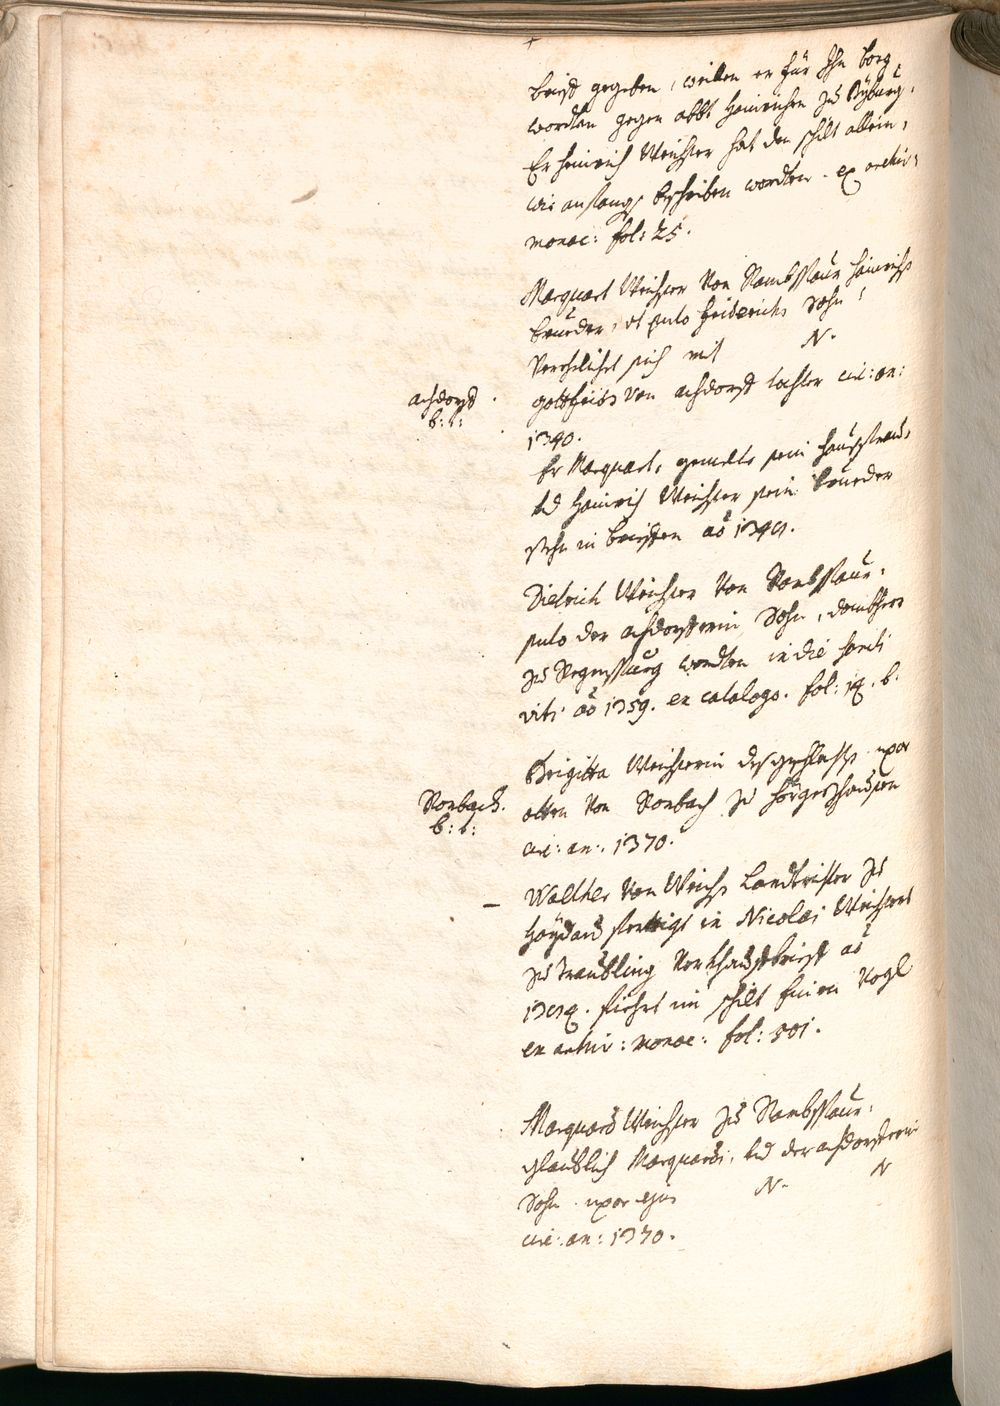 brieff gegeben, weillen er für Ihn borg
wordten gegen abbt Heinrichen zu Byburg.
Er Heinrich Weichser hat den schilt allein,
wie anfangs beschriben wordten. ex archiv:
monac: fol: 25.
Marquart Weichser Von Raubssaur Heinrichs
brueder, et puto Friderichs Sohn
Verehelicht sich mit N.
gottfrids von achdorff tochter circ: an:
achdorff
b: t:
1340.
Er Marquart, gemelte sein hausfrau,
und Heinrich Weichser sein brueder
stehn in brieffen aõ 1349.
Dietrich Weichser Von Raubssaur.
puto der achdorfferin Sohn, dombherr
zu Regenspurg wordten in die sancti
viti aõ 1359. ex catalogo. fol: 14. b.
Brigitta Weichserin des geschlechts uxor
Ronbach.
b: t:
otten Von Ronbach zu Hörgershausen
circ: an: 1370.
Walther Von Weichs Landtrichter zu
Haydau siglet in Nicolai Weichsers
zu Traubling Verkhauffbrieff aõ
1314. fiehrt im schilt Einen Vogl
ex archiv: monac: fol: 501.
Marquard Weichser zu Raubssaur.
glaublich Marquardi, und der achdorfferin
Sohn uxor ejus N. N
circ: an: 1370.